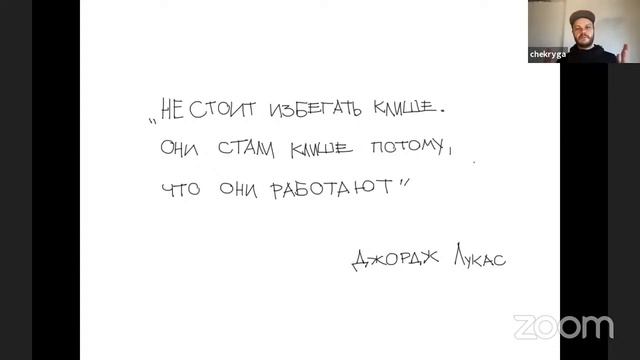 chekryga
„НЕ СТОИТ ИЗБЕГАТЬ КЛИШЕ.
ОНИ СТАЛИ КЛИШЕ ПОТОМУ,
ЧТО ОНИ РАБОТАЮТ"
ДЖОРДЖ ЛУКАС
zoom